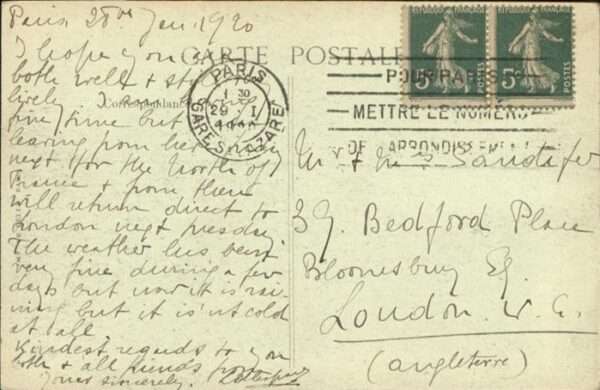 Paris 28th Jan. 1920
I hope you are
both well & still
lively. I am having
fine time but
leaving from here
next for the North of
France & from there
will return direct to
London next
The weather has been
very fine during a few
days but now it is rai-
ning but it is not cold
at all
Kindest regards to you
both & all friends from
yours sincerely.
CARTE POSTALE
Correspondance
PARIS
1 30
29 I
GARE ST LAZARE
5c
POSTES
5c
POSTES
POUR PARIS
METTRE LE NUMÉRO
D'ARRONDISSEMENT
Mr & Mrs Sandifer
39. Bedford Place
Bloomsbury Sq.
London. W. C.
(Angleterre)